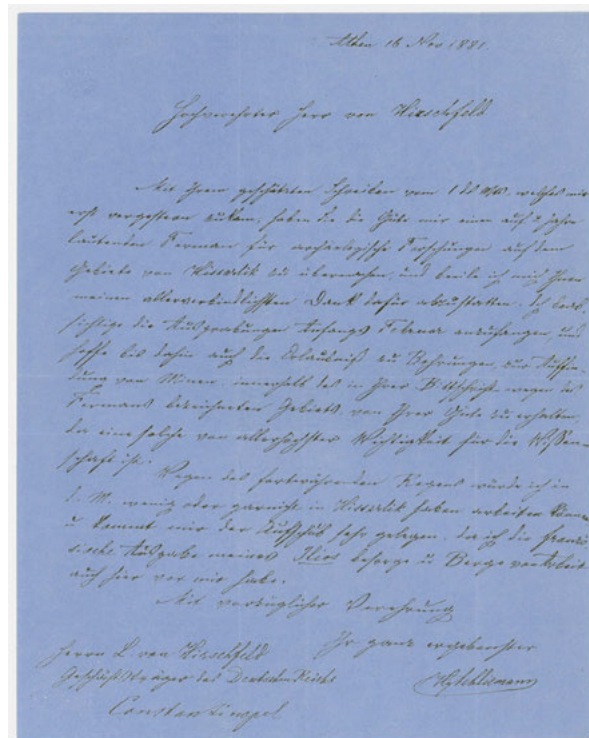 Athen 16 Nov 1881.
Hochverehrter Herr von Hirschfeld
Mit Ihrem geschätzten Schreiben vom 1 ds welches mir
erst vorgestern zukam, haben Sie die Güte mir einen auf 2 Jahre
lautenden Ferman für archäologische Forschungen auf dem
Gebiete von Hissarlik zu übersenden, und beeile ich mich Ihnen
meinen allerverbindlichsten Dank dafür abzustatten. Ich beab-
sichtige die Ausgrabungen Anfangs Februar anzufangen, und
hoffe bis dahin auch die Erlaubniß zu Bohrungen, zur Auffin-
dung von Minen, innerhalb des in Ihrer Bittschrift wegen des
Fermans bezeichneten Gebiets, von Ihrer Güte zu erhalten,
da eine solche von allerhöchster Wichtigkeit für die Wissen-
schaft ist.
Wegen des fortwährenden Regens würde ich in
d. M. wenig oder garnicht in Hissarlik haben arbeiten können
u kommt mir der Aufschub sehr gelegen, da ich die franzö-
sische Ausgabe meines Ilios besorge u Berge von Arbeit
auch hier vor mir habe.
Mit vorzüglicher Verehrung
Ihr ganz ergebenster
Herrn L. von Hirschfeld
Geschäftsträger des Deutschen Reichs
HySchliemann
Constantinopel